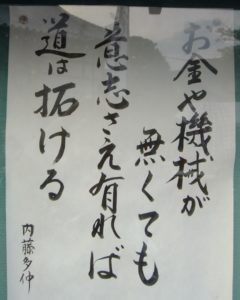 お金や機械が
無くても
意志さえ有れば
道は拓ける
内藤多仲